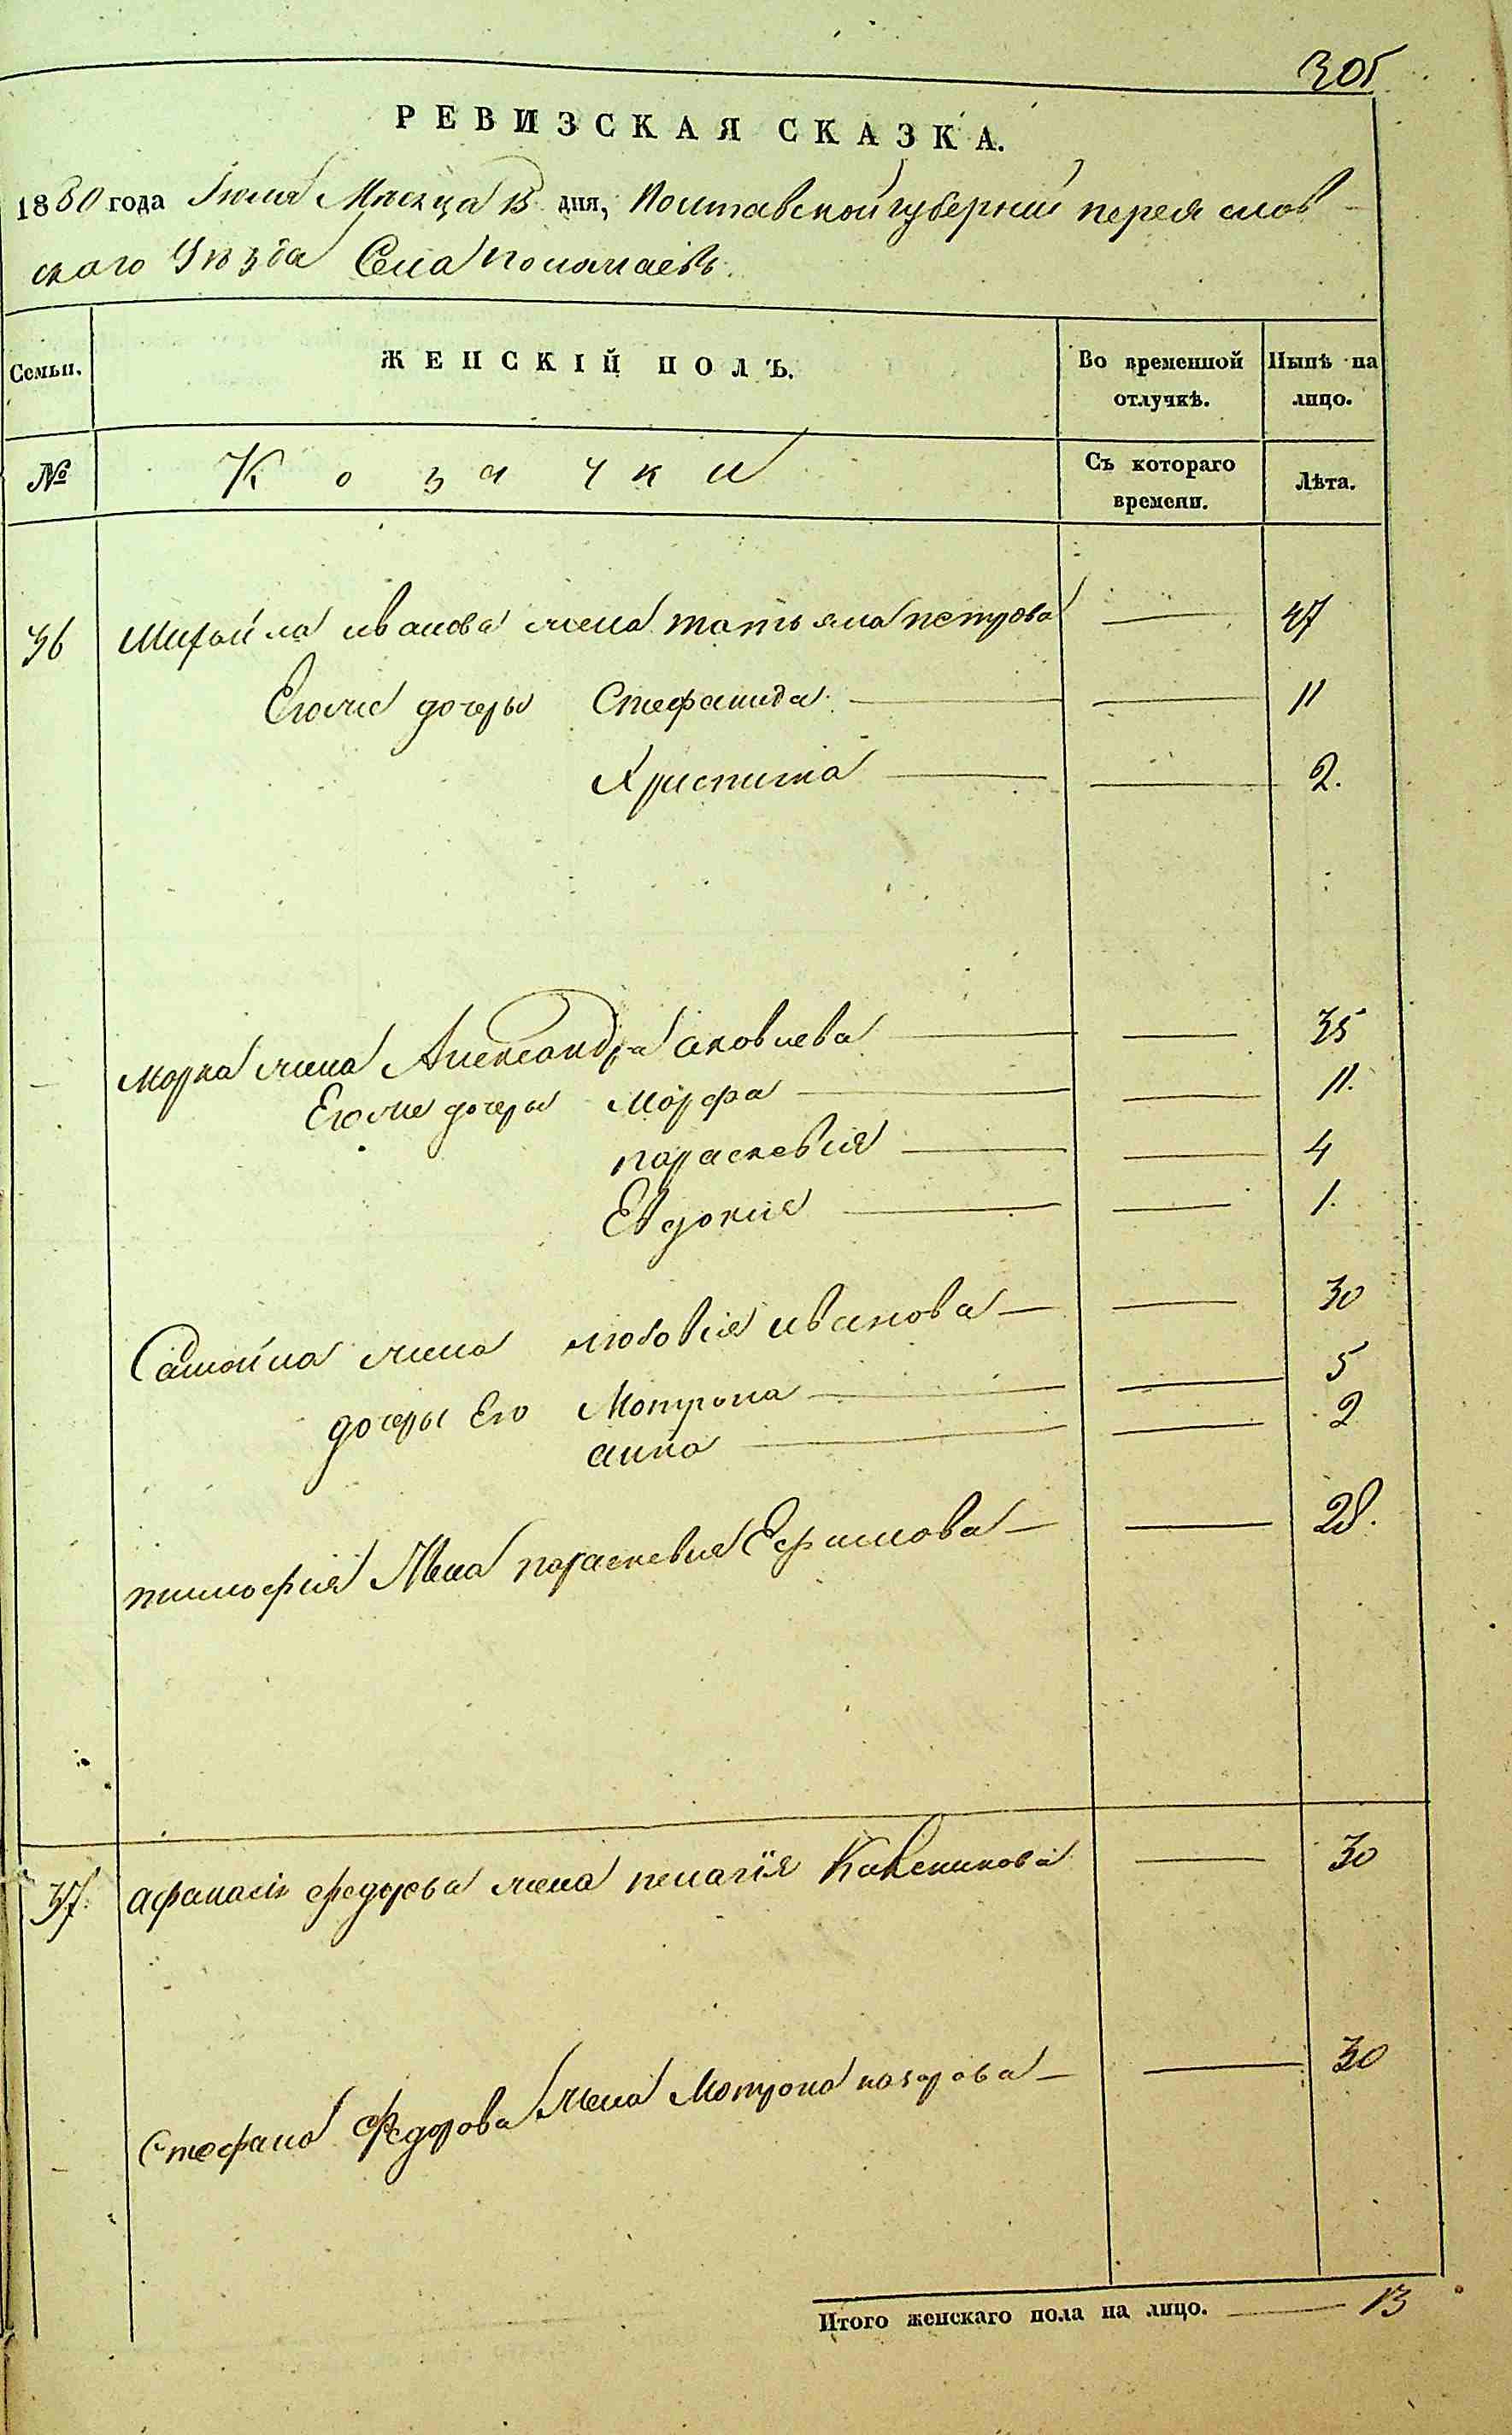 305
РЕВИЗСКАЯ СКАЗКА.
1850 года Іюля Месяца 13 дня, Полтавской губерніи переяслов
скаго Уѣзда Села
Семьи.
ЖЕНСКІЙ ПОЛЪ.
Во временной отлучкѣ.
Нынѣ на лицо.
№
Козачки
Съ котораго времени.
Лѣта.
36 Михайла иванова жена татьяна петрова — 47
Егоже дочеры Стефанида — — 11
Христина — — 2.
Марка жена Александра аковлева — — 35
Егоже дочеры Марфа — — 11.
параскевія — — 4
Евдокия — — 1.
Самойла жена любовія иванова — — 30
дочеры Его Мотрона — — 5
анна — — 2
тимофия жена параскевия Ефимова — — 28.
37. афанасія федорова жена пелагія — 30
Стефана Федорова жена Мотрона назарова — — 30
Итого женскаго пола на лицо. — 13